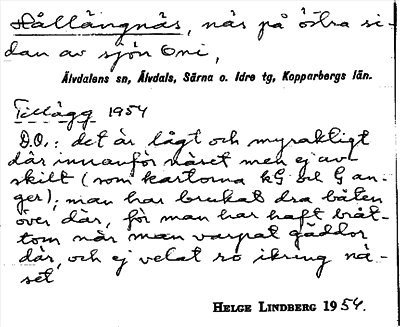 Hållängnäs, näs på östra si-
dan av sjön Oni,
Älvdalens sn, Älvdals, Särna o. Idre tg, Kopparbergs län.
Tillägg 1954
D.O.: det är lågt och myraktigt
där innanför näset men ej av-
skilt (som kartorna kG bil G an-
ger); man har brukat dra båten
över där, för man har haft bråt-
tom när man varpat gäddor
där, och ej velat ro ikring nä-
set
HELGE LINDBERG 1954.